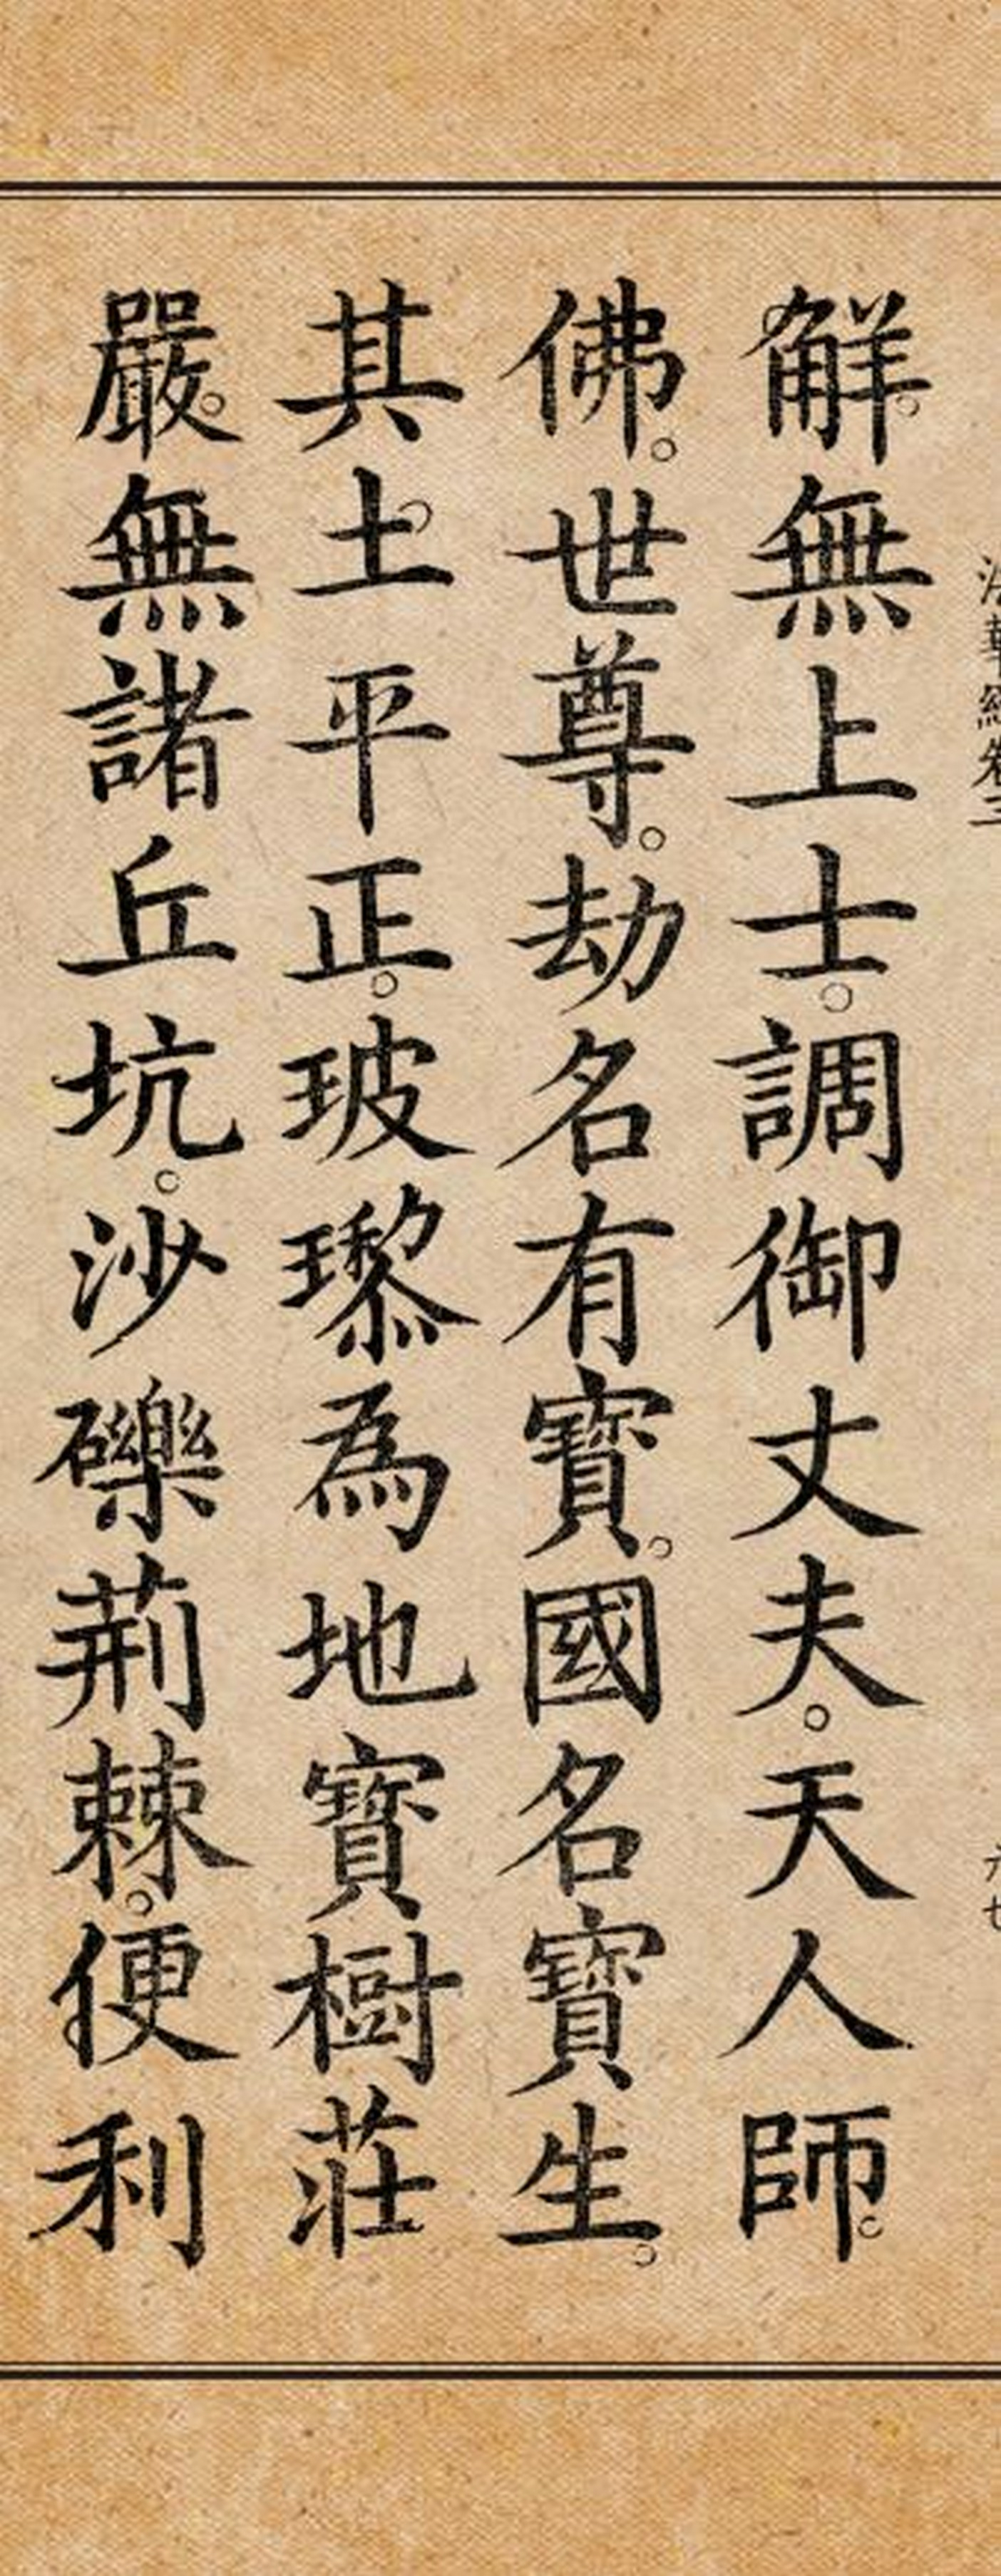 法華經卷三
解。無上士。調御丈夫。天人師。
佛。世尊。劫名有寶。國名寶生。
其土。平正。玻瓈為地寶樹莊
嚴。無諸丘坑。沙礫荊棘。便利